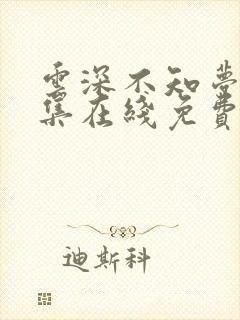 雲深不知夢
集在綫免費
迪斯科